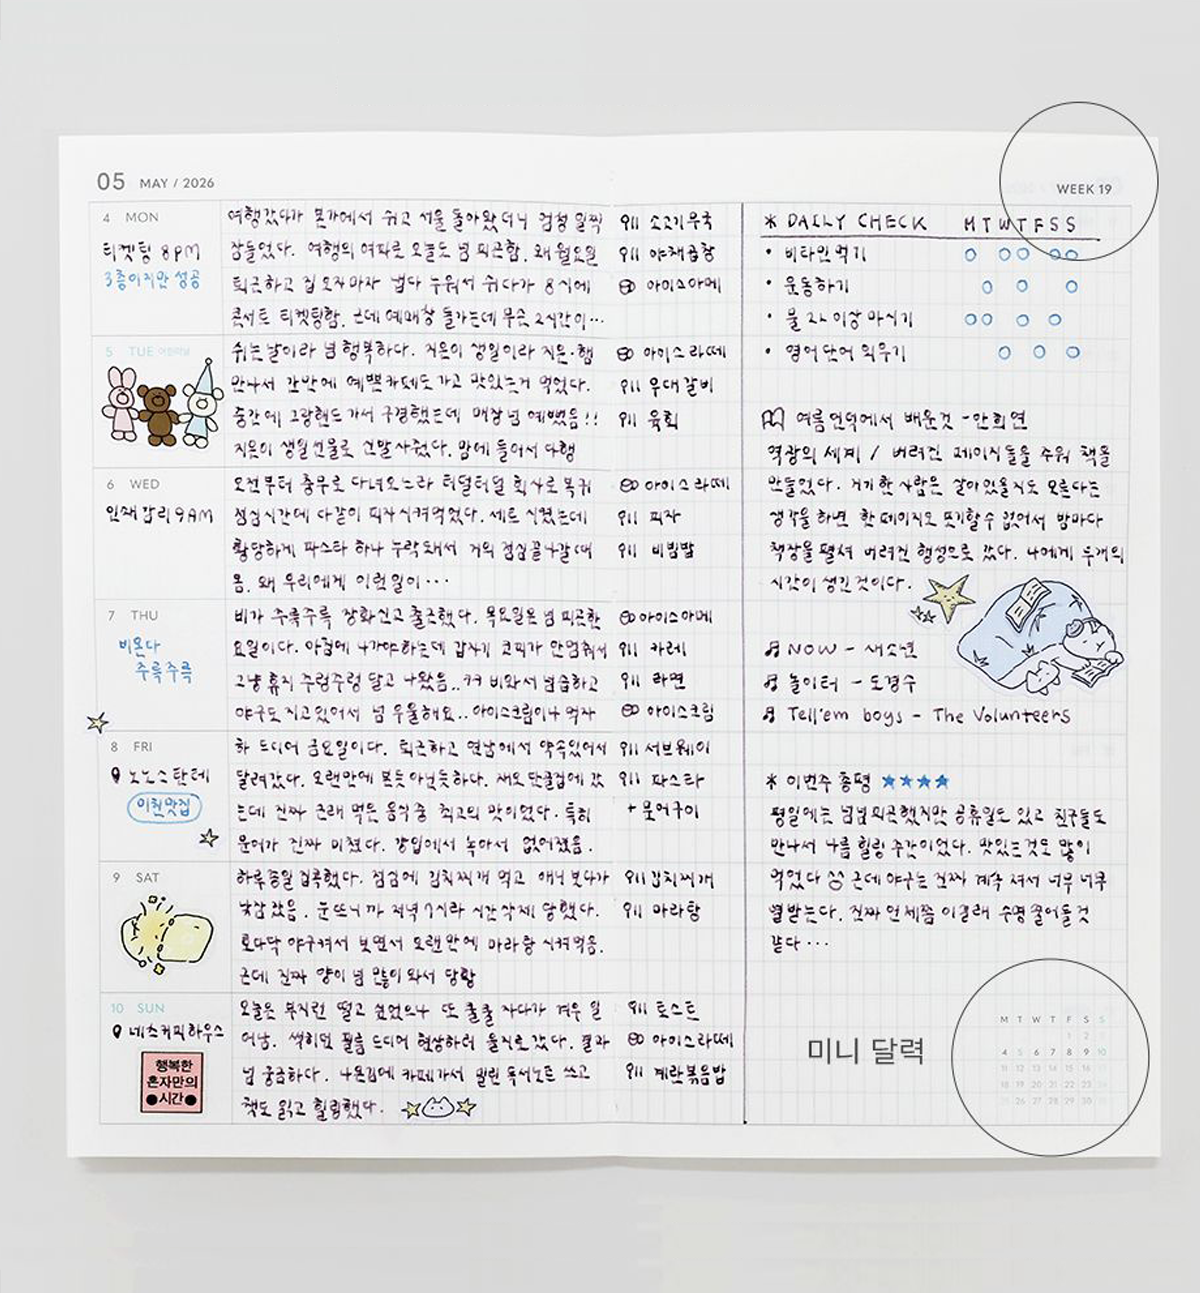 05 MAY / 2026
WEEK 19
4 MON
티켓팅 8PM
3층이지만 성공
여행갔다가 본가에서 쉬고 서울 돌아왔더니 엄청 일찍
잠들었다. 여행의 여파로 오늘도 넘 피곤함. 왜 월요일
퇴근하고 집 오자마자 냅다 누워서 쉬다가 8시에
콘서트 티켓팅함. 근데 예매창 들가는데 무슨 2시간이...
소고기무국
야채곱창
아이스아메
5 TUE 어린이날
쉬는날이라 넘 행복하다. 지은이 생일이라 지은·햄
만나서 간만에 예쁜카페도가고 맛있는거 먹었다.
중간에 그랑핸드가서 구경했는데 매장 넘 예뻤음!!
지은이 생일선물로 신발사줬다. 맘에 들어서 다행
아이스라떼
우대갈비
육회
6 WED
인쇄감리 9AM
오전부터 충무로 다녀오느라 터덜터덜 회사로 복귀
점심시간에 다같이 피자시켜먹었다. 세트 시켰는데
황당하게 파스타 하나 누락돼서 거의 점심 끝나갈때
옴. 왜 우리에게 이런일이...
아이스라떼
피자
비빔밥
7 THU
비온다
주륵주륵
비가 주륵주륵 장화신고 출근했다. 목요일은 넘 피곤한
요일이다. 아침에 나가야하는데 갑자기 코피가 안멈춰서
그냥 휴지 주렁주렁 달고 나왔음.. ㅋㅋ 비와서 넘습하고
야구도지고있어서 넘 우울해요.. 아이스크림이나 먹자
아이스아메
카레
라면
아이스크림
8 FRI
노노스탄테
이천맛집
하 드디어 금요일이다. 퇴근하고 연남에서 약속있어서
달려갔다. 오랜만에 본듯아닌듯하다. 재오 단골집에 갔
는데 진짜 근래 먹은 음식중 최고의 맛이었다. 특히
문어가 진짜 미쳤다. 걍입에서 녹아서 없어졌음.
서브웨이
파스타
+ 문어구이
9 SAT
하루종일 집콕했다. 점심에 김치찌개 먹고 애니 보다가
낮잠 잤음. 눈뜨니까 저녁 7시라 시간삭제 당했다.
호다닥 야구켜서 보면서 오랜만에 마라탕 시켜먹음.
근데 진짜 양이 넘 많이 와서 당황
김치찌개
마라탕
10 SUN
네스커피하우스
행복한
혼자만의
시간
오늘은 부지런 떨고 싶었으나 또 쿨쿨 자다가 겨우 일
어남. 색히던 필름 드디어 현상하러 을지로갔다. 결과
넘 궁금하다. 나온김에 카페가서 밀린 독서노트 쓰고
책도 읽고 힐링했다.
토스트
아이스라떼
계란볶음밥
* DAILY CHECK M T W T F S S
• 비타민먹기
• 운동하기
• 물 2L 이상 마시기
• 영어단어 외우기
여름 언덕에서 배운것 - 안희연
역광의 세계 / 버려진 페이지들을 주워 책을
만들었다. 거기 한 사람은 살아있을지도 모른다는
생각을 하면 한 페이지도 뜯어할수 없어서 밤마다
책장을 펼쳐 버려진 행성으로 갔다. 나에게 두개의
시간이 생긴 것이다.
NOW - 새소년
놀이터 - 도경수
Tell'em boys - The Volunteers
* 이번주 총평 ★★★★
평일에는 넘넘피곤했지만 공휴일도 있고 친구들도
만나서 나름 힐링 주간이었다. 맛있는것도 많이
먹었다 근데 야구는 진짜 계속 져서 너무 너무
열받는다. 진짜 언제쯤 이길래 수명 줄어들것
같다...
미니 달력
M T W T F S S
1 2 3
4 5 6 7 8 9 10
11 12 13 14 15 16 17
18 19 20 21 22 23 24
25 26 27 28 29 30 31